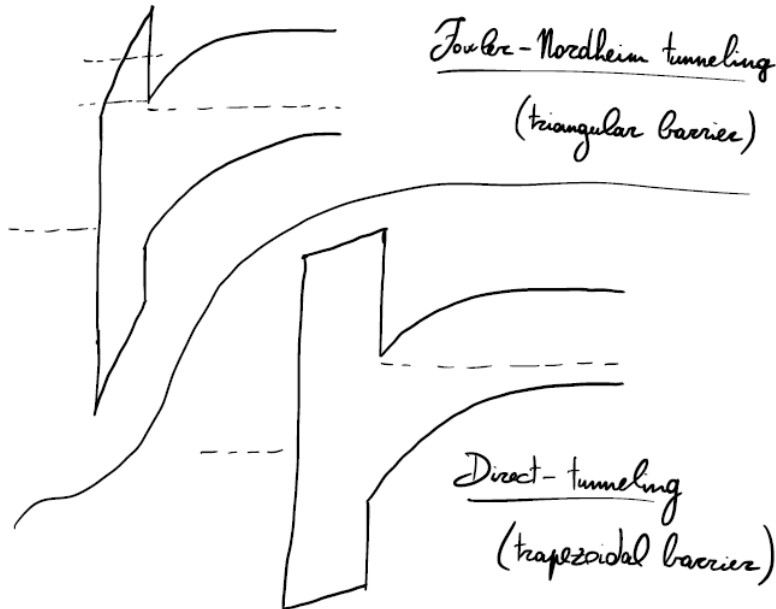 Fowler-Nordheim tunneling
(triangular barrier)
Direct-tunneling
(trapezoidal barrier)